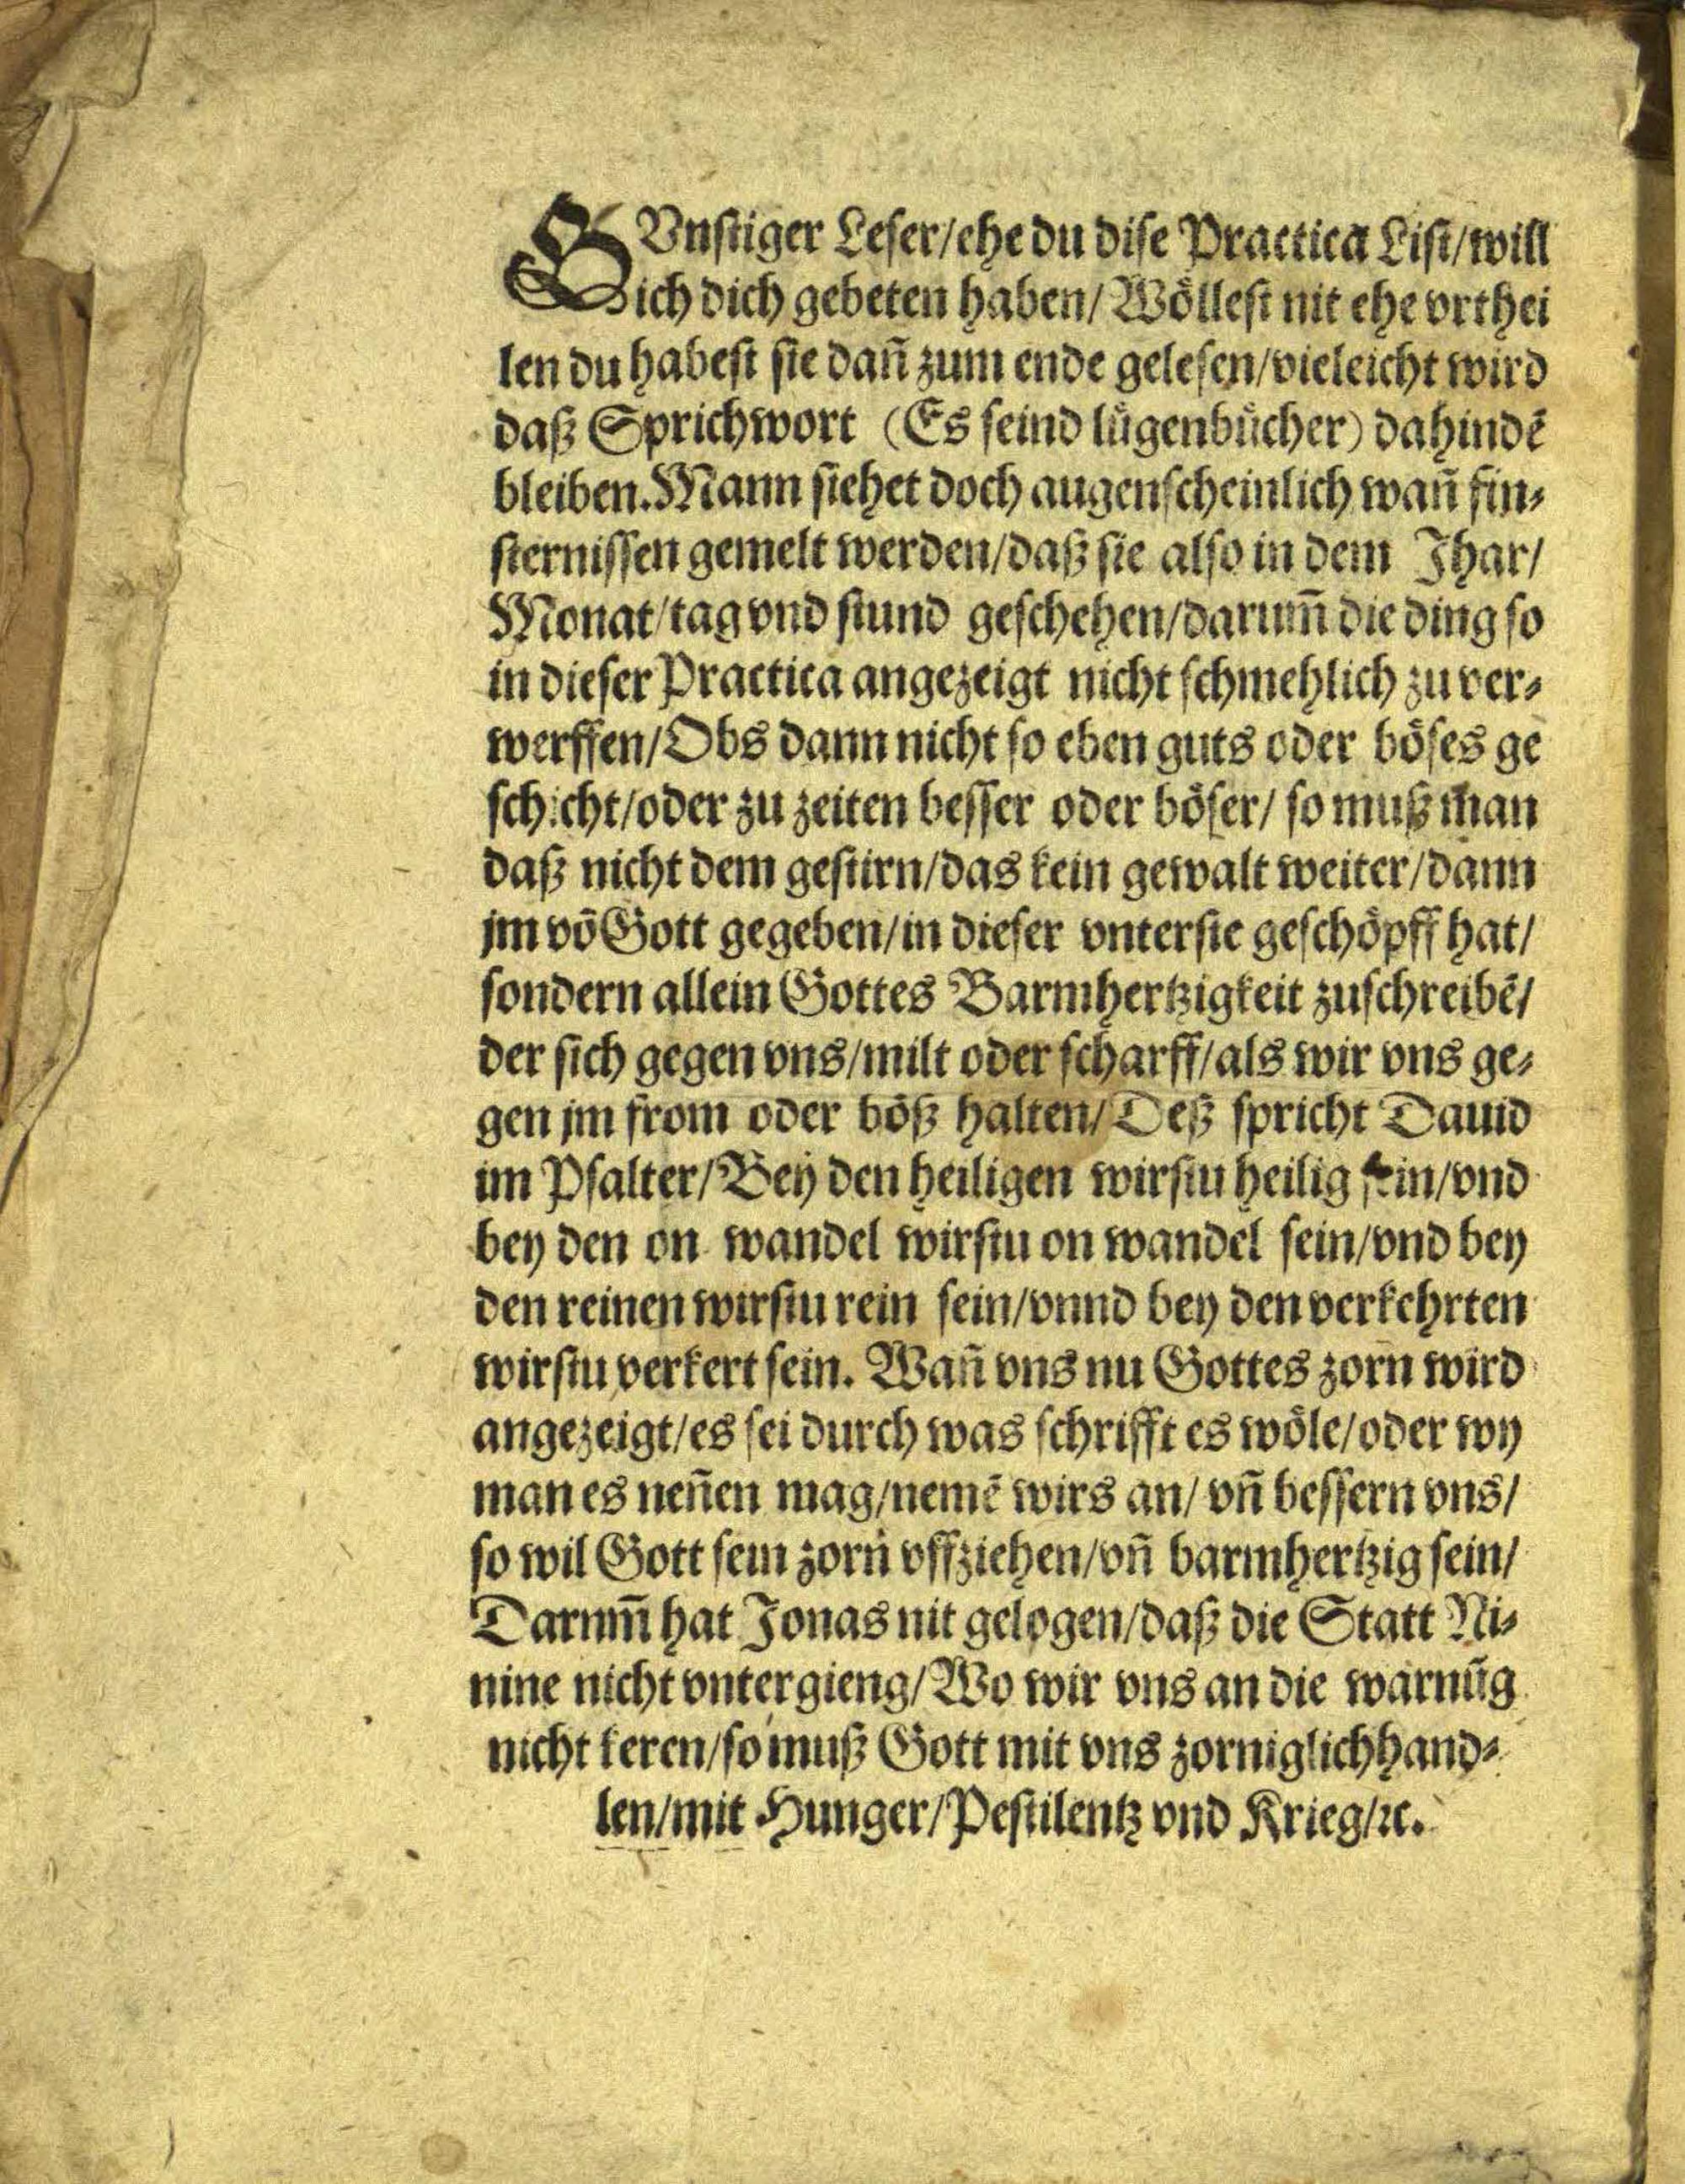 GVnstiger Leser/ehe du dise Practica List/will
ich dich gebeten haben/Wöllest nit ehe vrthei
len du habest sie dañ zum ende gelesen/vieleicht wird
daß Sprichwort (Es seind lügenbücher) dahindē
bleiben. Mann siehet doch augenscheinlich wañ fin⸗
sternissen gemelt werden/daß sie also in dem Jhar/
Monat/tag vnd stund geschehen/darum̄ die ding so
in dieser Practica angezeigt nicht schmehlich zu ver⸗
werffen/Obs dann nicht so eben guts oder böses ge
schicht/oder zu zeiten besser oder böser/ so muß man
daß nicht dem gestirn/das kein gewalt weiter/dann
jm vō Gott gegeben/in dieser vnterste geschöpff hat/
sondern allein Gottes Barmhertzigkeit zuschreibē/
der sich gegen vns/milt oder scharff/als wir vns ge⸗
gen jm from oder böß halten/Deß spricht Dauid
im Psalter/Bey den heiligen wirstu heilig sein/vnd
bey den on wandel wirstu on wandel sein/vnd bey
den reinen wirstu rein sein/vnnd bey den verkehrten
wirstu verkert sein. Wañ vns nu Gottes zorn wird
angezeigt/es sei durch was schrifft es wöle/oder wy
man es neñen mag/nemē wirs an/ vñ bessern vns/
so wil Gott sein zorn vffziehen/vñ barmhertzig sein/
Darum̄ hat Jonas nit gelogen/daß die Statt Ni⸗
nine nicht vntergieng/Wo wir vns an die warnūg
nicht keren/so muß Gott mit vns zorniglich hand⸗
len/mit Hunger/Pestilentz vnd Krieg/ꝛc.